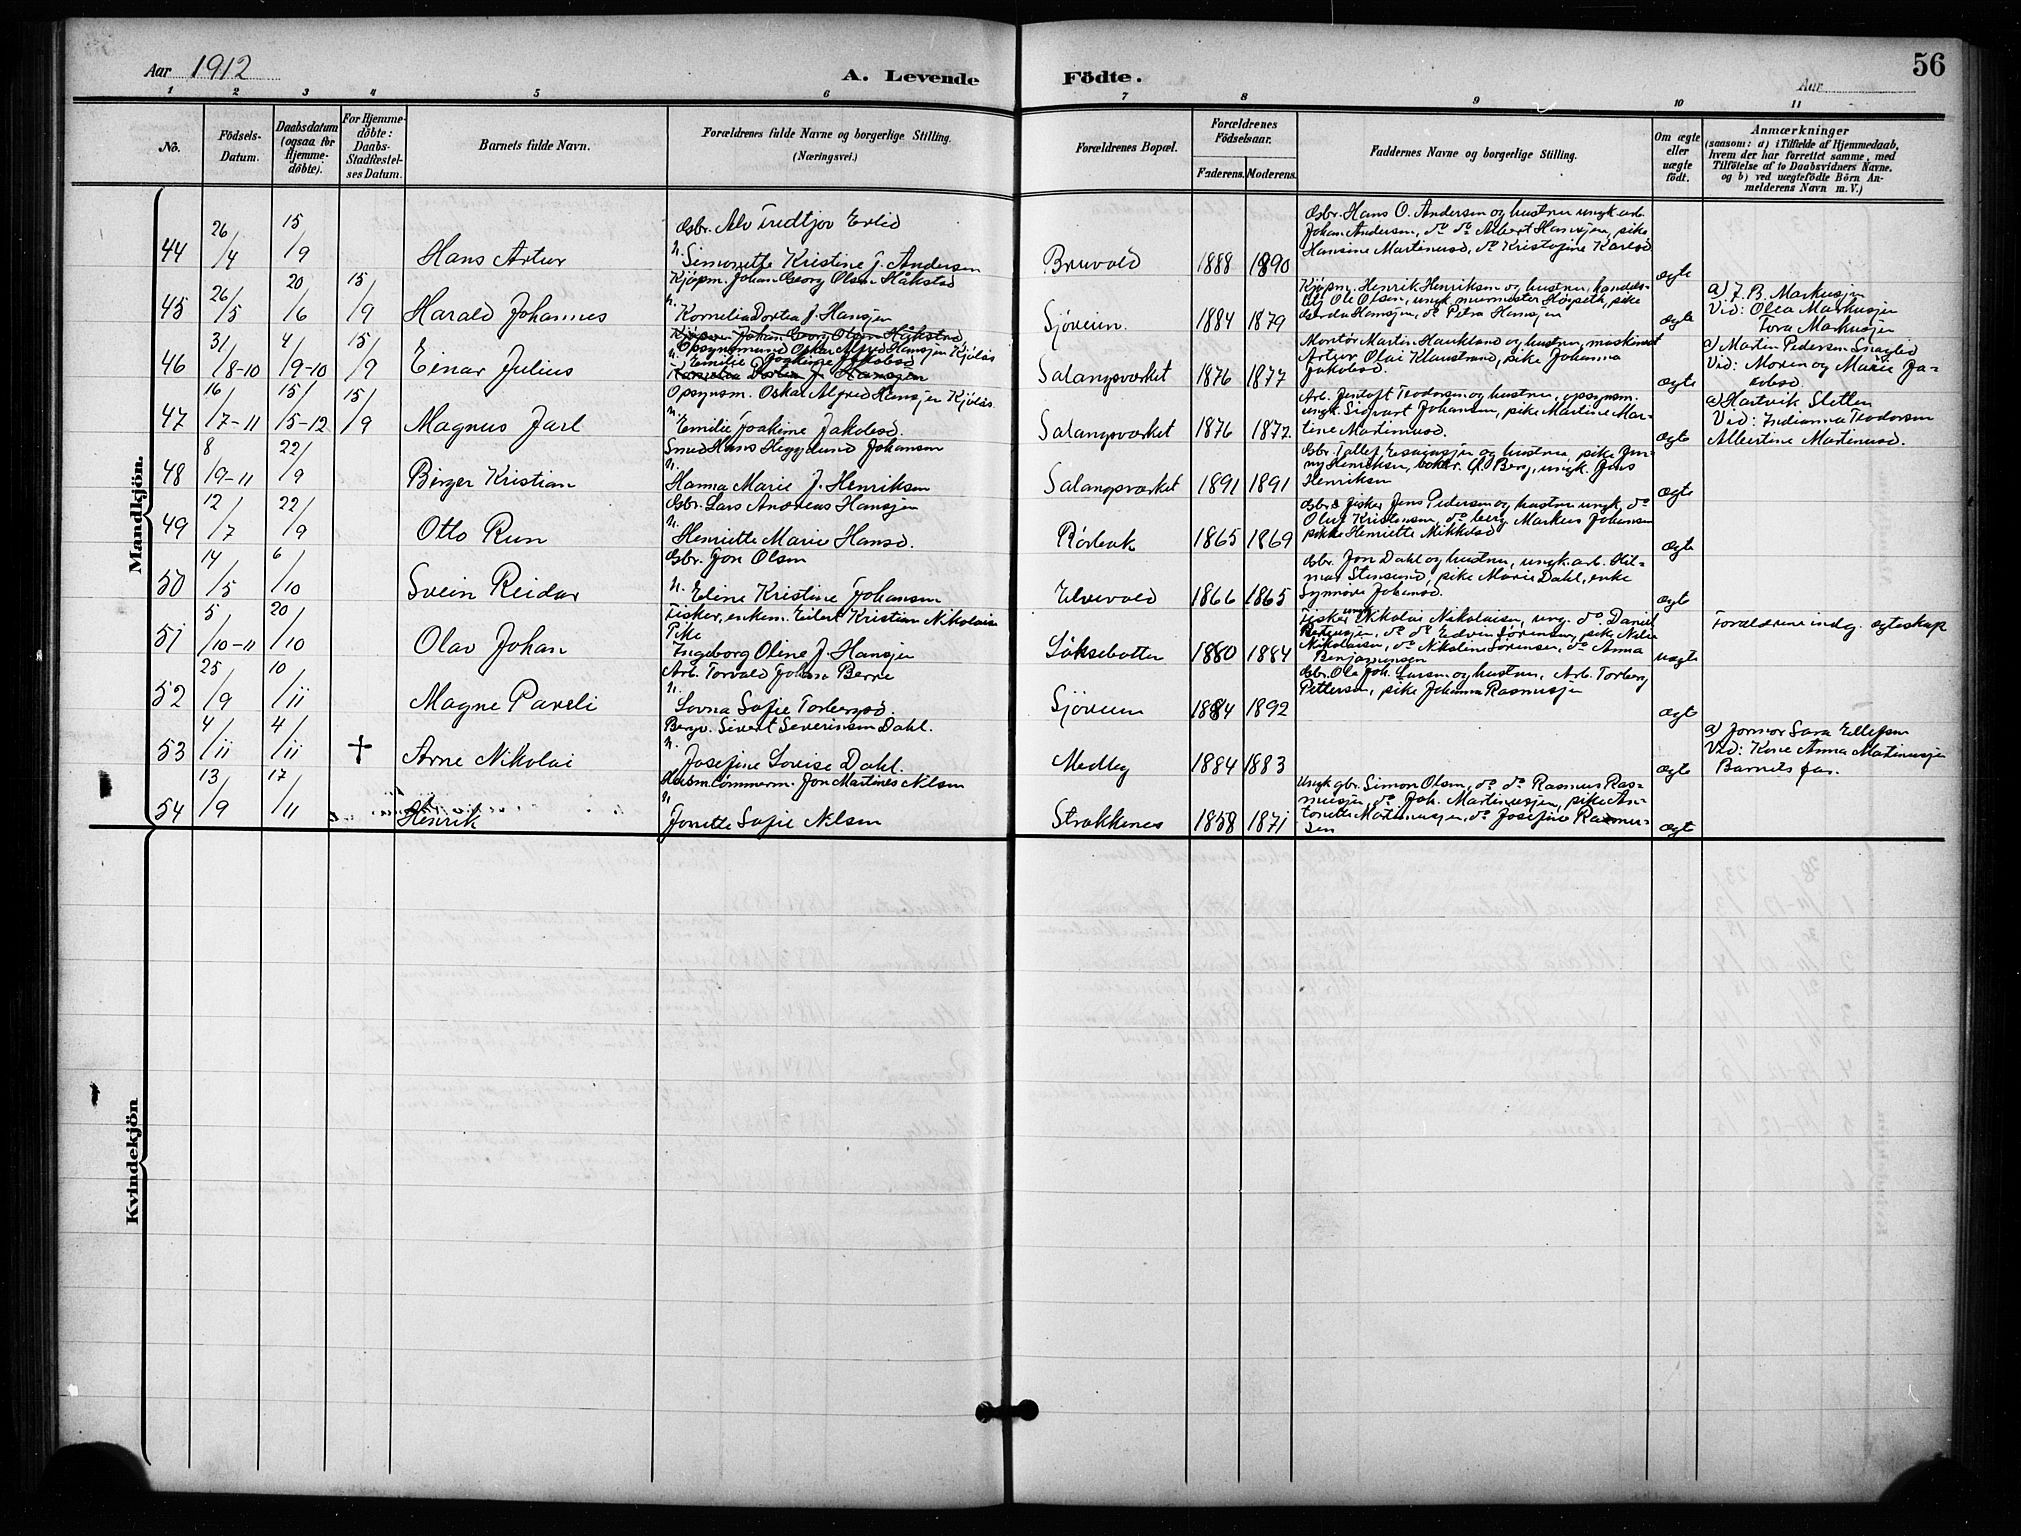 Aar 1912
A. Levende Födte.
Aar
56
1 2 3 4 5 6 7 8 9 10 11
No.
Födsels-Datum.
Daabsdatum (ogsaa for Hjemme-döbte).
For Hjemme-döbte: Daabs-Stadfæstel-ses Datum.
Barnets fulde Navn.
Forældrenes fulde Navne og borgerlige Stilling.
(Næringsvei.)
Forældrenes Bopæl.
Forældrenes Födselsaar.
Faderens. Moderens.
Faddernes Navne og borgerlige Stilling.
Om ægte eller uægte födt.
Anmærkninger
(saasom: a) i Tilfælde af Hjemmedaab, hvem der har forrettet samme, med Tilföielse af to Daabsvidners Navne. og b) ved uægtefödte Börn An-melderens Navn m. V.)
Mandkjön.
44 26/4 15/9 Hans Artur
Gbr. Alv Fredtjov Evlid
h. Simonette Kristine J. Andersen
Bruvold 1888 1890
Gbr. Hans O. Andersen og hustru ungk. arb.
Johan Andersen, do do Albert Hansjen, pike
Hansine Martinusd, do Kristofine Karlsd
ægte
45 26/5 20/6 15/9 Harald Johannes
Kjøpm. Johan Georg Olsen Håkstad
h. Kornelia Dortea J. Hansjen
Sjøveien. 1884 1879
Kjøpm. Henrik Henriksen og hustru, handels-
Ole Olsen, ungk. murmester Høgseth, pike
Gerda Hansjen, do Petra Hansjen
ægte
a) J. B. Markusjen
Vid: Olea Markusjen
Tora Markusjen
46 31/8-10 4/9-10 15/9 Einar Julius
Kjøpm. Johan Georg Olsen Håkstad
Opsynsmand Oskar Alfred Hansjen Kjølås
h. Emilie Joakime Jakobsd
Kornelia Dortea J. Hansjen
Salangsverket 1876 1877
Montør Martin Haukland og hustru, maskinist
Artur Olai Klaustrand, pike Johanna
Jakobsd.
ægte
a) Martin Pedersen
Vid: Moren og Marie Ja-
kobsd.
47 16/7-11 15/5-12 15/9 Magnus Jarl
Opsynsm. Oskar Alfred Hansjen Kjølås.
h. Emilie Joakime Jakobsd.
Salangsverket 1876 1877.
Arb. Jentoft Teodorsen og hustru, opsynsm.
ungk. Sigvart Johansen, pike Martine Mar-
tine Martinusd.
ægte
a) Hartvik Sletten
Vid: Indianna Teodorsen
Albertine Martinusd.
48 8/9-11 22/9 Birger Kristian
Smed Hans Hegglund Johansen
h. Hanna Marie J. Henriksen
Salangsverket 1891 1891
Gbr. Tollef Esaiassjen og hustru, pike Jen-
ny Henriksen, Berg, ungk. Jens
Henriksen
ægte
49 12/7 22/9 Otto Run
Gbr. Lars Andreas Hansjen
h. Henriette Marie Hansd.
Rørbak 1865 1869
Gbr & fisker Jens Pedersen og hustru ungk. do
Oluf Kristensen, do berg. Markus Johansen
pike Henriette Mikkelsd
ægte
50 14/5 6/10 Svein Reidar
Gbr. Jon Olsen
h. Eline Kristine Johansen
Elvevold 1866 1865
Gbr. Jon Dahl og hustru, ungk. arb. Hil-
mar Stensund, pike Marie Dahl, enke
Synnøve Johansd.
ægte
51 5/10-11 20/10 Olav Johan
Fisker, enkem. Eilert Kristian Nikolaisen
Pike
Ingeborg Oline J. Hansjen
Løksebotten 1880 1884
Fisker ungk. Nikolai Nikolaisen, ung. do Daniel
Petersjen, do do Edvin Sørensen, pike Nilsi
Nikolaisen, do Nikoline Sørensen, do Anna
Benjaminsen
uægte
Forældrene indg. ægteskap
52 25/9 10/11 Magne Pareli
Arb. Torvald Johan Berre
h. Lovna Sofie Torbergsd.
Sjøveien 1884 1892
Gbr. Ole Joh. Larsen og hustru, Arb. Torberg
Pettersen, pike Johanna Rasmusjen
ægte
53 4/11 4/11 † Arne Nikolai
Bergv. Sivert Severinsen Dahl.
h. Josefine Lovise Dahl.
Medby 1884 1883
ægte
a) Jormor Sara Ellefsen
Vid: Kone Anna Martinusjen
Barnets far.
54 13/9 17/11 Henrik
Tømmerm. Jon Martines Nilsen
h. Jonette Sofie Nilsen
Strokkenes 1858 1871
Ungk. gbr. Simon Olsen, do do Rasmus Ras-
musjen, do Joh. Martinusjen, pike An-
tonette Martinusjen, do Josefine Rasmus-
sen
ægte
Kvindekjön